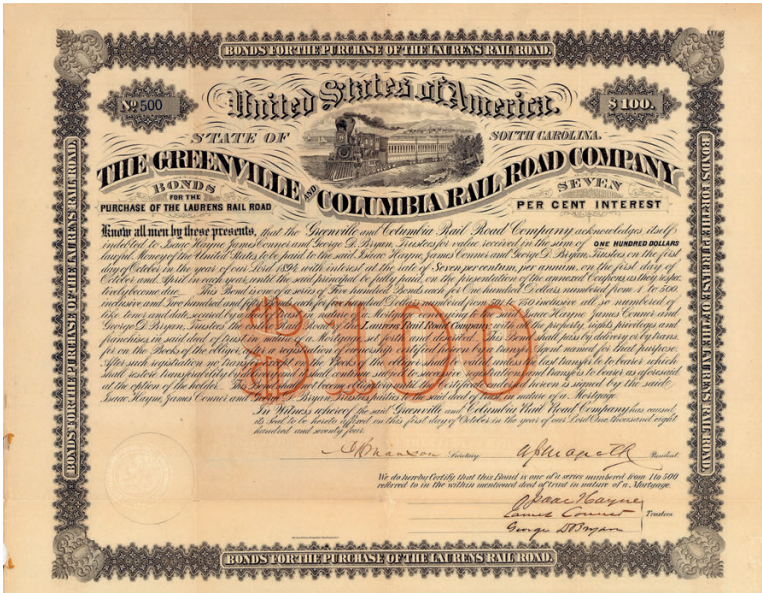 BONDS FOR THE PURCHASE OF THE LAURENS RAIL ROAD.
No 500
United States of America.
$100.
STATE OF SOUTH CAROLINA.
THE GREENVILLE AND COLUMBIA RAIL ROAD COMPANY
BONDS
FOR THE
PURCHASE OF THE LAURENS RAIL ROAD
SEVEN
PER CENT INTEREST
Know all men by these presents, that the Greenville and Columbia Rail Road Company acknowledges itself
indebted to Isaac Hayne, James Conner and George D. Bryan, Trustees for value received in the sum of ONE HUNDRED DOLLARS
lawful Money of the United States, to be paid to the said Isaac Hayne, James Conner and George D. Bryan, Trustees on the first
day of October in the year of our Lord 1894 with interest at the rate of Seven per centum, per annum, on the first day of
October and April in each year, until the said principal be fully paid, on the presentation of the annexed Coupons as they respec
tively This Bond is one of a series of Five hundred Bonds each for One hundred Dollars numbered from 1 to 500,
inclusive and Two hundred and fifty Bonds each for five hundred Dollars numbered from 501 to 750 inclusive all so numbered of
like tenor and date, secured by a in nature of a Mortgage conveying to the said Isaac Hayne James Conner and
George D. Bryan, Trustees the of the Laurens Rail Road Company with all the property, rights privileges and
franchises, in said deed of trust in nature of a Mortgage set forth and described. This Bond shall pass by delivery or by trans
fer on the Books of the obligor, a registration of ownership certified hereon by a transfer Agent named for that purpose.
After such registration no transfer except on the Books of the obligor shall be valid unless the last transfer be to bearer which
shall restore transferability by delivery shall continue subject to successive registration and transfers to bearer as aforesaid
at the option of the holder. This Bond shall not become obligatory until the certificate endorsed hereon is signed by the said
Isaac Hayne, James Conner and George D. Bryan, Trustees parties to the said deed of trust in nature of a Mortgage.
$100
In Witness whereof the said Greenville and Columbia Rail Road Company has caused
its Seal to be hereto affixed on this first day of October in the year of our Lord One thousand eight
hundred and seventy four.
Secretary
President.
We do hereby Certify that this Bond is one of a series numbered from 1 to 500
referred to in the within mentioned deed of trust in nature of a Mortgage.
Isaac Hayne
James Conner
Trustees
George D Bryan
BONDS FOR THE PURCHASE OF THE LAURENS RAIL ROAD.
BONDS FOR THE PURCHASE OF THE LAURENS RAIL ROAD.
BONDS FOR THE PURCHASE OF THE LAURENS RAIL ROAD.